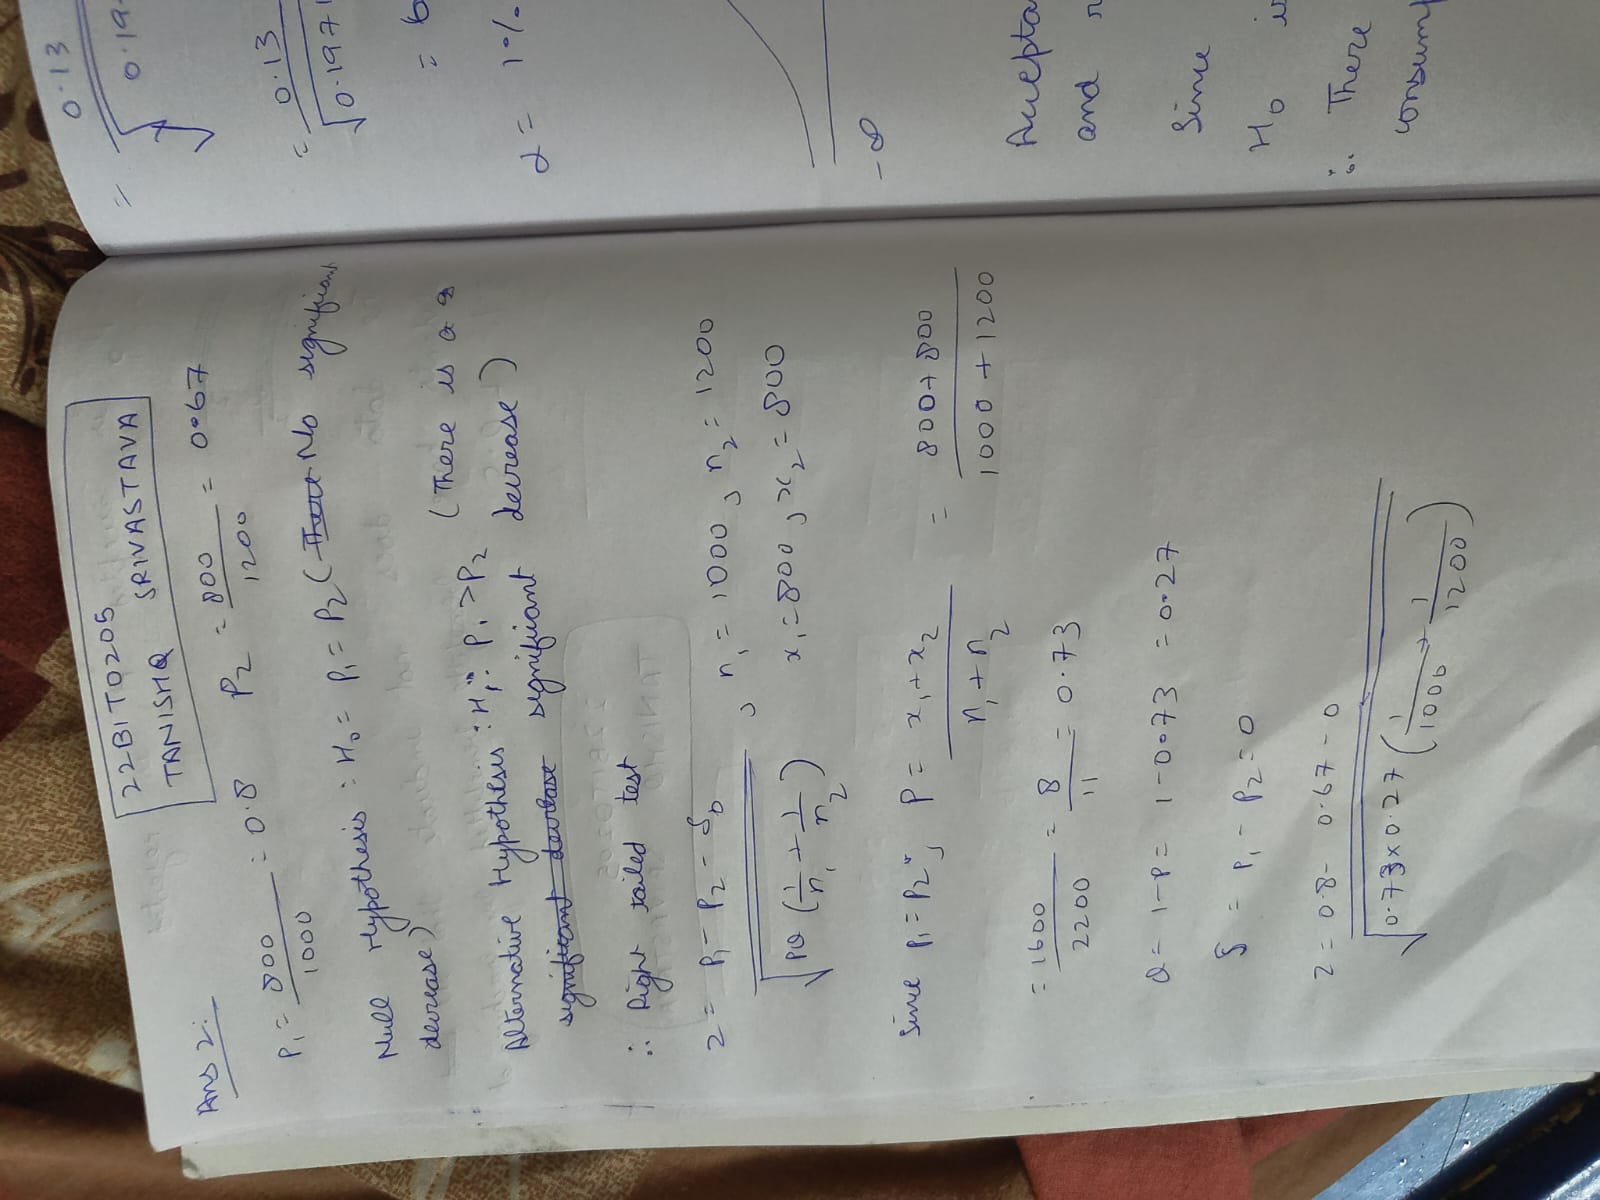 22BIT0205
TANISHQ SRIVASTAVA
Ans 2:
P₁ = 800/1000 = 0.8 P₂ = 800/1200 = 0.67
Null Hypothesis : H₀ = P₁ = P₂ ( There No significant
decrease)
Alternative Hypothesis : H₁: P₁ > P₂ (There is a
significant decrease significant decrease)
∴ Right tailed test
z = P₁ - P₂ - δ₀ / √(PQ (1/n₁ + 1/n₂)) , n₁ = 1000, n₂ = 1200
x₁ = 800, x₂ = 800
Since P₁ = P₂, P = x₁ + x₂ / n₁ + n₂ = 800 + 800 / 1000 + 1200
= 1600/2200 = 8/11 = 0.73
Q = 1 - P = 1 - 0.73 = 0.27
δ = P₁ - P₂ = 0
z = 0.8 - 0.67 - 0 / √(0.73 × 0.27 (1/1000 + 1/1200))
= 0.13 / √
= 0.13
√0.1971
= 6
α = 1%
-∞
and
Since
H₀
∴ There